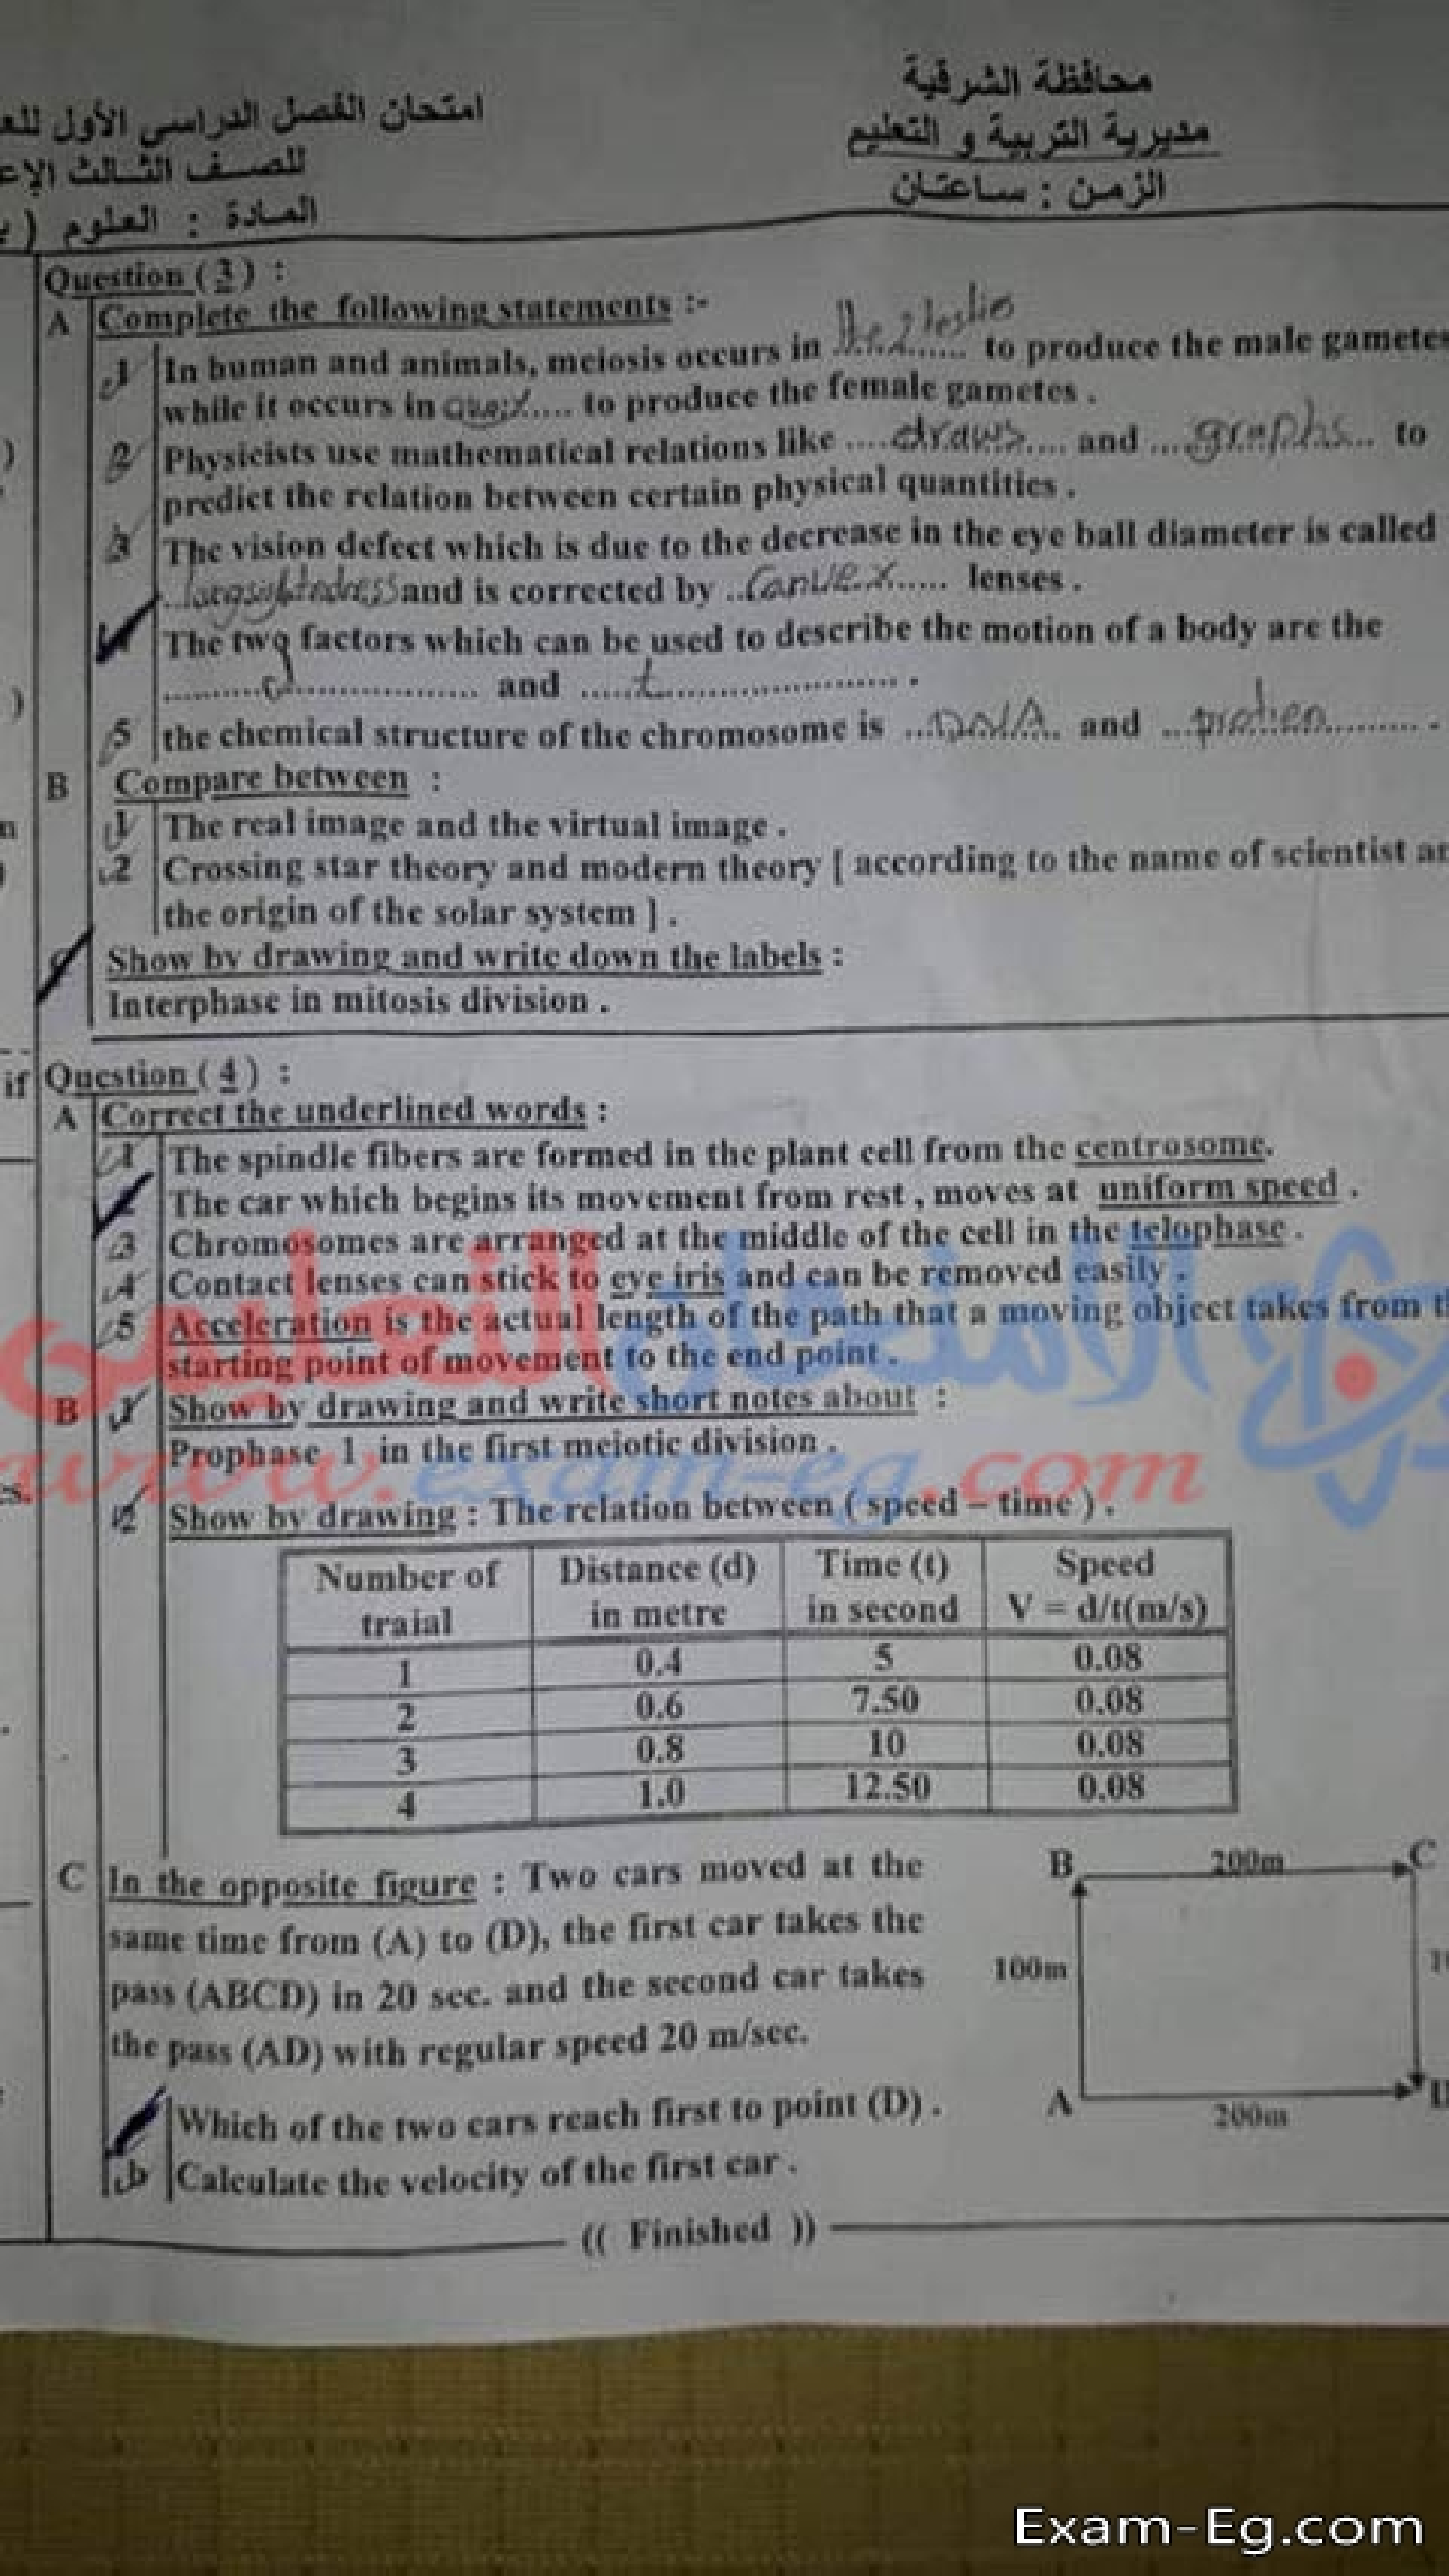 محافظة الشرقية
مديرية التربية و التعليم
الزمن : ساعتان
امتحان الفصل الدراسي الأول
للصف الثالث
المادة : العلوم )
Question ( 3 ) :
A Complete the following statements :-
1 In human and animals, meiosis occurs in the to produce the male gametes
while it occurs in to produce the female gametes .
2 Physicists use mathematical relations like ....draws.... and ....graphs... to
predict the relation between certain physical quantities .
3 The vision defect which is due to the decrease in the eye ball diameter is called
and is corrected by ..Convex...... lenses .
The two factors which can be used to describe the motion of a body are the
..........d................ and .....t....................... .
5 the chemical structure of the chromosome is ...DNA.. and .............. .
B Compare between :
1 The real image and the virtual image .
2 Crossing star theory and modern theory [ according to the name of scientist
the origin of the solar system ] .
Show by drawing and write down the labels :
Interphase in mitosis division .
if
Question ( 4 ) :
A Correct the underlined words :
1 The spindle fibers are formed in the plant cell from the centrosome.
The car which begins its movement from rest , moves at uniform speed .
3 Chromosomes are arranged at the middle of the cell in the telophase .
4 Contact lenses can stick to eye iris and can be removed easily .
5 Acceleration is the actual length of the path that a moving object takes from
starting point of movement to the end point .
الامتحان التعليمي
B 1 Show by drawing and write short notes about :
Prophase 1 in the first meiotic division .
www.exam-eg.com
2 Show by drawing : The relation between ( speed – time ) .
Number of traial Distance (d) in metre Time (t) in second Speed V = d/t(m/s)
1 0.4 5 0.08
2 0.6 7.50 0.08
3 0.8 10 0.08
4 1.0 12.50 0.08
C In the opposite figure : Two cars moved at the
same time from (A) to (D), the first car takes the
pass (ABCD) in 20 sec. and the second car takes
the pass (AD) with regular speed 20 m/sec.
Which of the two cars reach first to point (D) .
b Calculate the velocity of the first car .
B 200m C
100m
A 200m
(( Finished ))
Exam-Eg.com